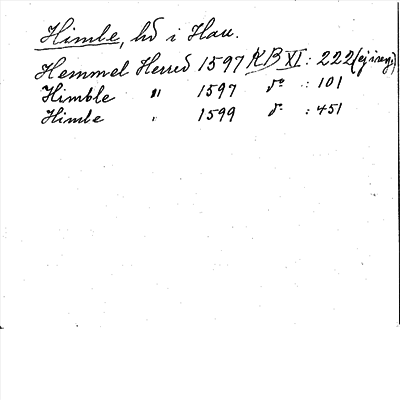 Himle, hd i Hall.
Hemmel Herred 1597 KB XI : 222 (ej i reg.)
Himble " 1597 do : 101
Himle " 1599 do : 451